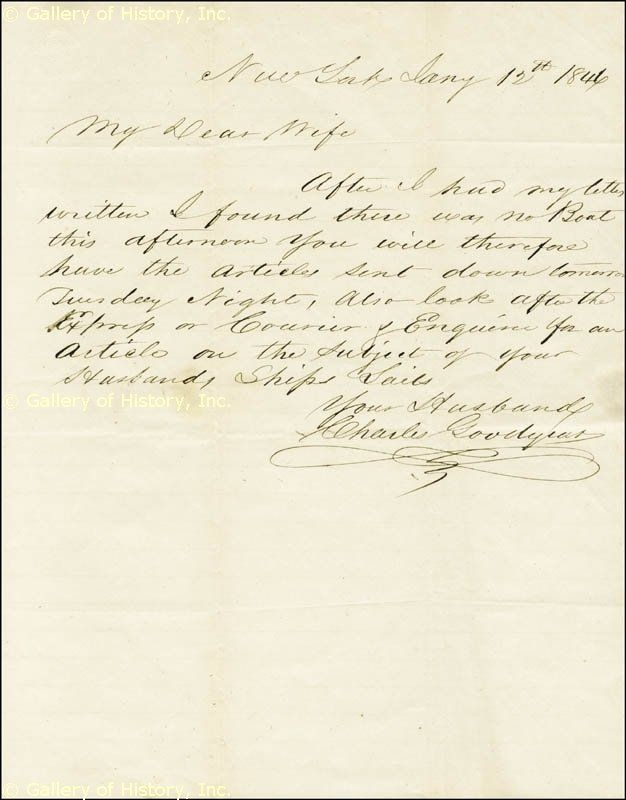 © Gallery of History, Inc.
© Gallery of History, Inc.
New York Jany 12th 1846
My Dear Wife
After I had my letter
written I found there was no Boat
this afternoon You will therefore
have the articles sent down tomorrow
Tuesday Night, Also look after the
Express or Courier & Enquirer for an
Article on the Subject of your
Husbands Ships Sails
© Gallery of History, Inc.
© Gallery of History, Inc.
Your Husband
Charles Goodyear
© Gallery of History, Inc.
© Gallery of History, Inc.